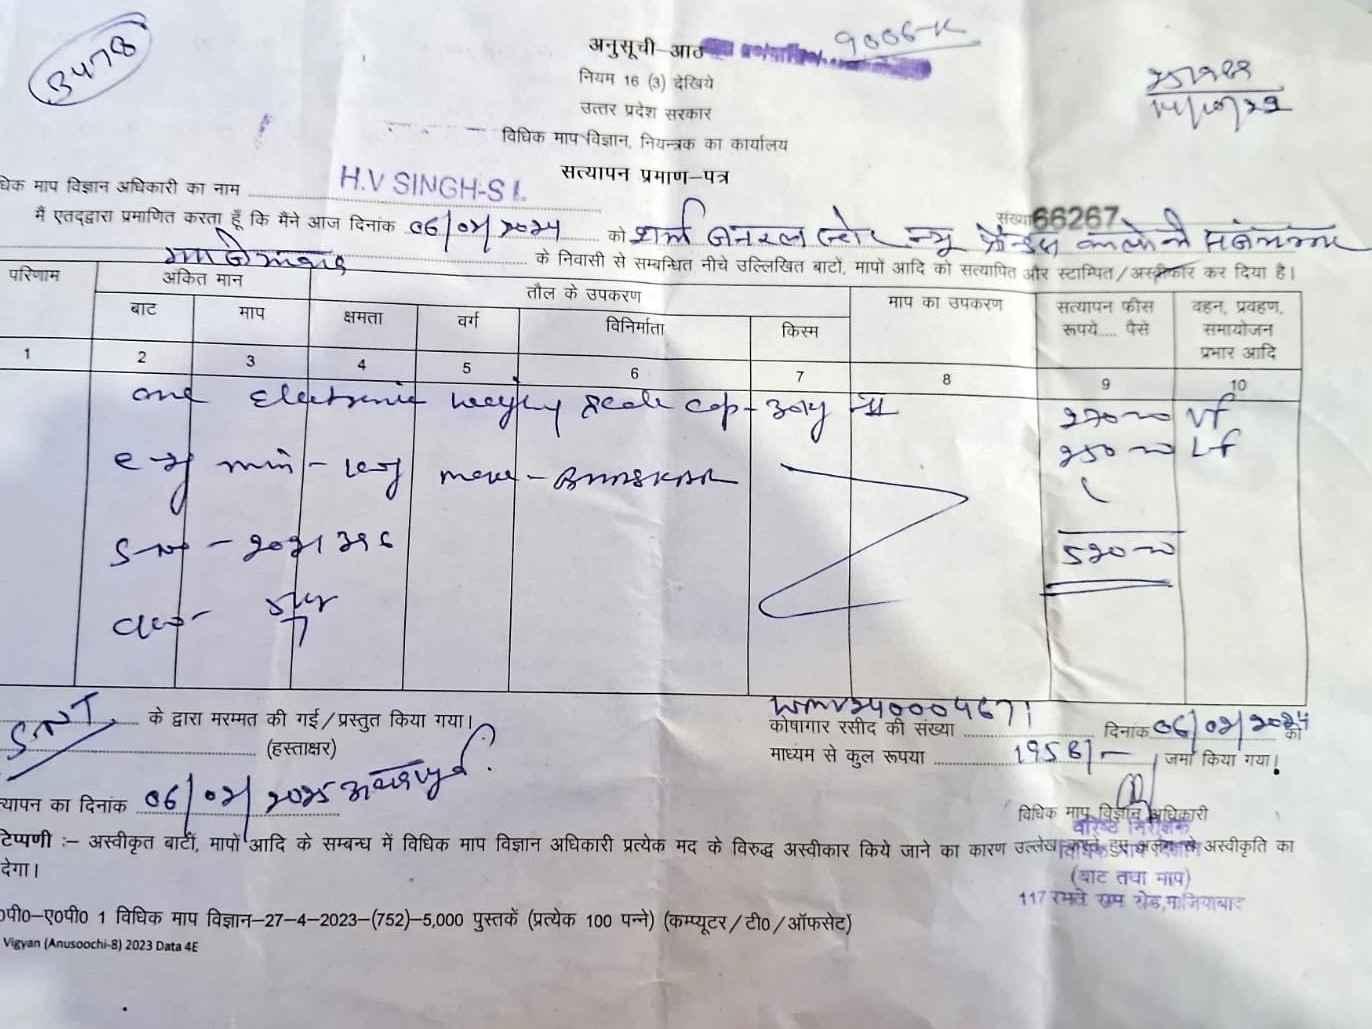 3478
अनुसूची–आठ
9006-K
नियम 16 (3) देखिये
उत्तर प्रदेश सरकार
विधिक माप विज्ञान, नियन्त्रक का कार्यालय
सत्यापन प्रमाण–पत्र
धिक माप विज्ञान अधिकारी का नाम H.V SINGH-S I.
संख्या 66267
मैं एतद्द्वारा प्रमाणित करता हूँ कि मैने आज दिनांक 06/02/2024 को शर्मा जनरल स्टोर न्यू फ्रेन्ड्स कालोनी
गाजियाबाद के निवासी से सम्बन्धित नीचे उल्लिखित बाटों, मापों आदि को सत्यापित और स्टाम्पित/अस्वीकार कर दिया है।
परिणाम अंकित मान तौल के उपकरण माप का उपकरण सत्यापन फीस रूपये..... पैसे वहन, प्रवहण, समायोजन प्रभार आदि
बाट माप क्षमता वर्ग विनिर्माता किस्म
1 2 3 4 5 6 7 8 9 10
one Electronic weighing scale cap- 270-00 Vf
e-2g min- mark- 250-00 Lf
S-No - 520-00
SNT के द्वारा मरम्मत की गई/प्रस्तुत किया गया।
(हस्ताक्षर)
WMV240004671
कोषागार रसीद की संख्या दिनांक 06/02/2024 को
माध्यम से कुल रूपया 1958/- जमा किया गया।
त्यापन का दिनांक 06/02/2025
विधिक माप विज्ञान अधिकारी
वरिष्ठ निरीक्षक
विधिक माप विज्ञान
(बाट तथा माप)
117 रमते राम रोड, गाजियाबाद
टिप्पणी :– अस्वीकृत बाटों, मापों आदि के सम्बन्ध में विधिक माप विज्ञान अधिकारी प्रत्येक मद के विरुद्ध अस्वीकार किये जाने का कारण उल्लेख करते हुए अलग से अस्वीकृति का
देगा।
0पी0–ए0पी0 1 विधिक माप विज्ञान–27-4-2023–(752)–5,000 पुस्तकें (प्रत्येक 100 पन्ने) (कम्प्यूटर/टी0/ऑफसेट)
Vigyan (Anusoochi-8) 2023 Data 4E